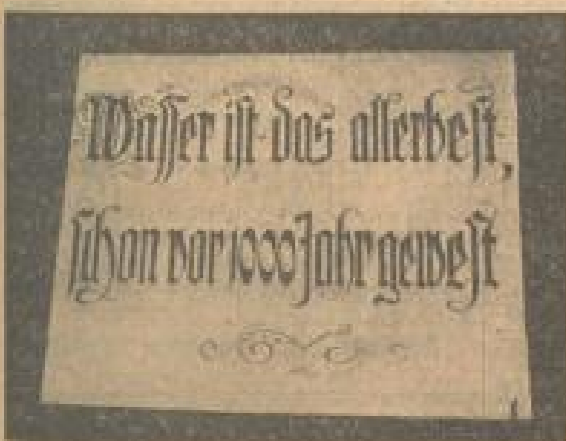 Wasser ist das allerbest,
schon vor 1000 Jahr gewest